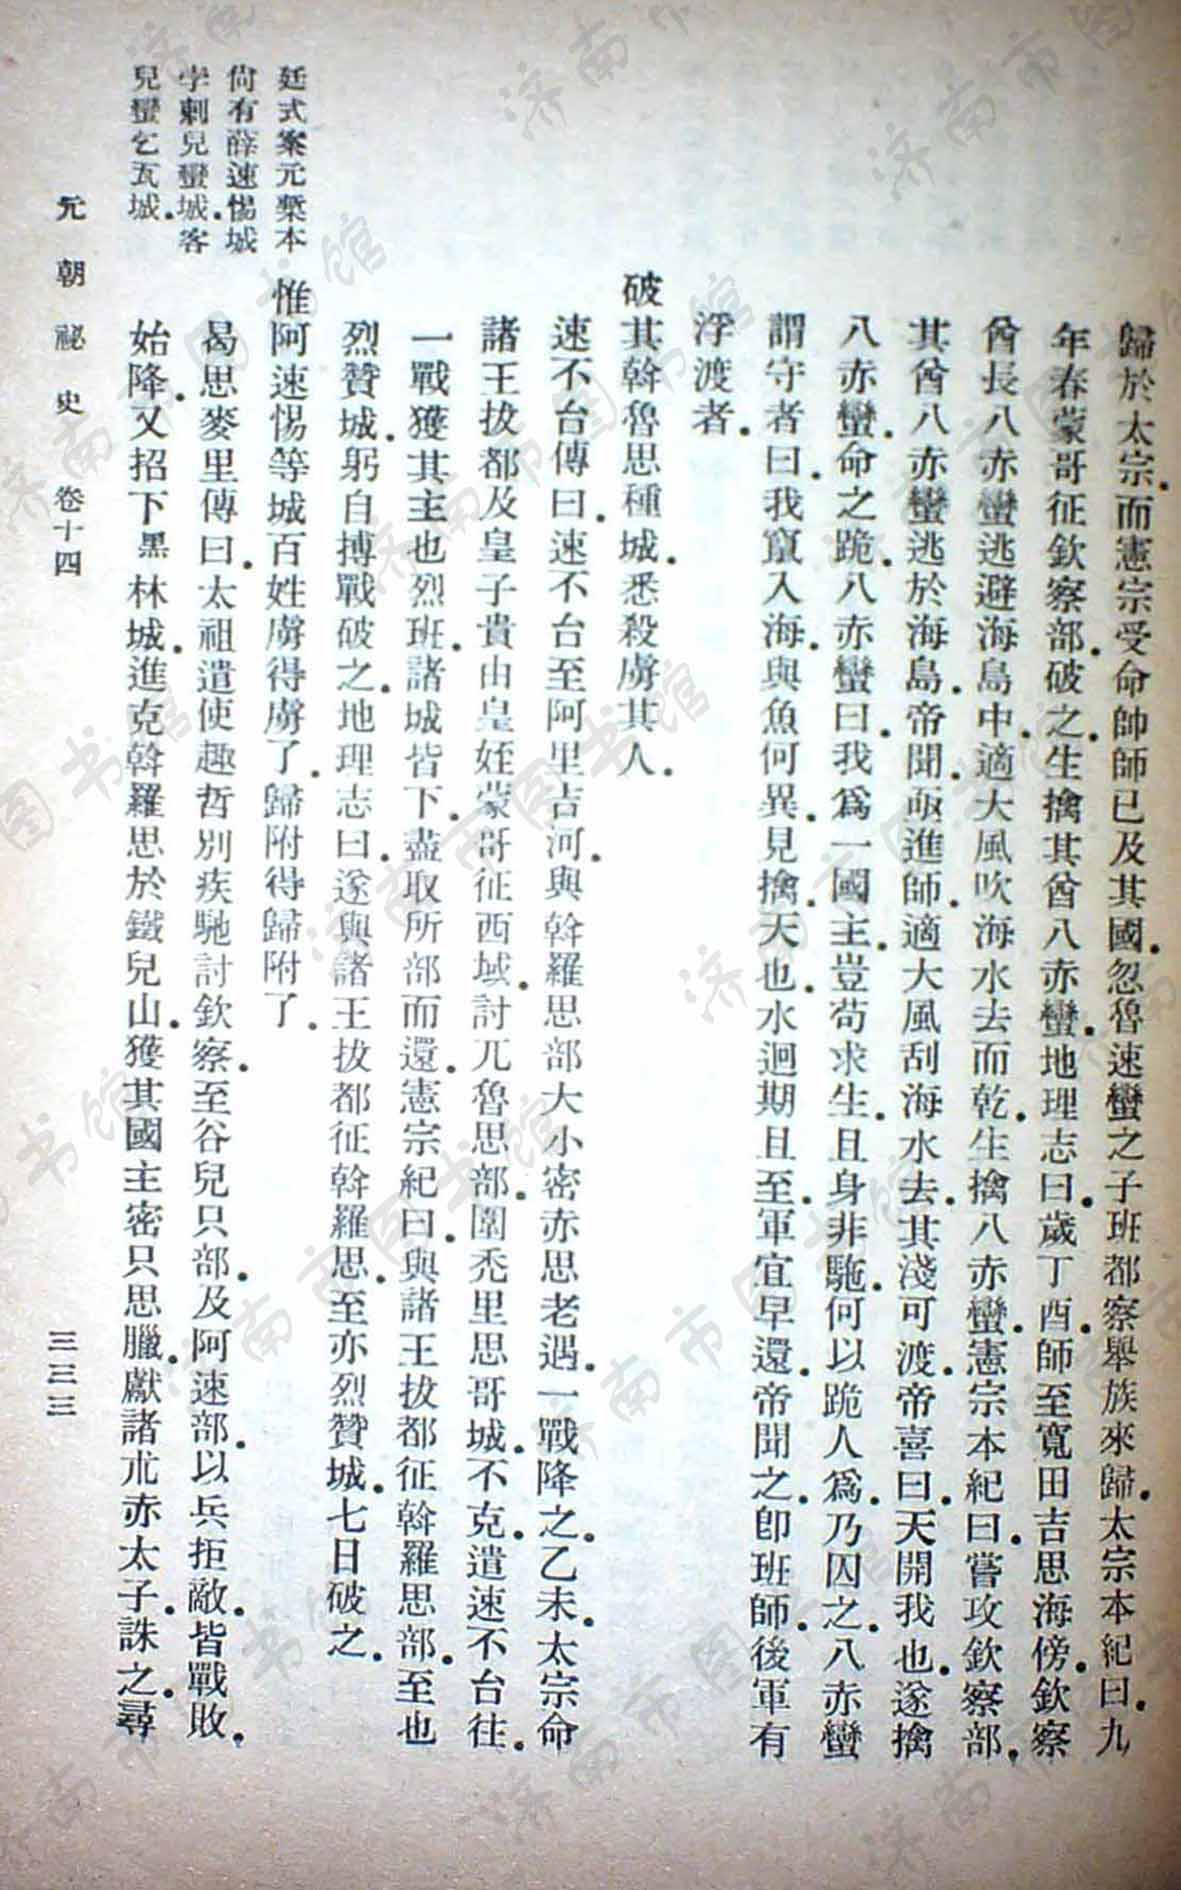 歸於太宗.而憲宗受命帥師已及其國.忽魯速蠻之子班都察舉族來歸.太宗本紀曰.九
年春蒙哥征欽察部.破之.生擒其酋八赤蠻.地理志曰.歲丁酉.師至寬田吉思海傍.欽察
酋長八赤蠻逃避海島中.適大風吹海水去而乾.生擒八赤蠻.憲宗本紀曰.嘗攻欽察部.
其酋八赤蠻逃於海島.帝聞.亟進師.適大風刮海水去.其淺可渡.帝喜曰.天開我也.遂擒
八赤蠻.命之跪.八赤蠻曰.我爲一國主.豈苟求生.且身非駞.何以跪人爲.乃囚之.八赤蠻
謂守者曰.我竄入海.與魚何異.見擒.天也.水迴期且至.軍宜早還.帝聞之.卽班師.後軍有
浮渡者.
破其斡魯思種城.悉殺虜其人.
速不台傳曰.速不台至阿里吉河.與斡羅思部大小密赤思老遇.一戰降之.乙未.太宗命
諸王拔都及皇子貴由皇姪蒙哥征西域.討兀魯思部.圍禿里思哥城.不克.遣速不台往.
一戰獲其主也烈班.諸城皆下.盡取所部而還.憲宗紀曰.與諸王拔都征斡羅思部.至也
烈贊城.躬自搏戰破之.地理志曰.遂與諸王拔都征斡羅思.至亦烈贊城.七日破之.
惟阿速惕等城百姓虜得虜了.歸附得歸附了.
曷思麥里傳曰.太祖遣使趣哲別疾馳討欽察.至谷兒只部.及阿速部.以兵拒敵.皆戰敗.
始降.又招下黑林城.進克斡羅思於鐵兒山.獲其國主密只思臘.獻諸朮赤太子.誅之.尋
廷式案元槧本
尙有薛速惕城
孛剌兒蠻城.客
兒蠻乞瓦城.
元朝祕史 卷十四 三三三